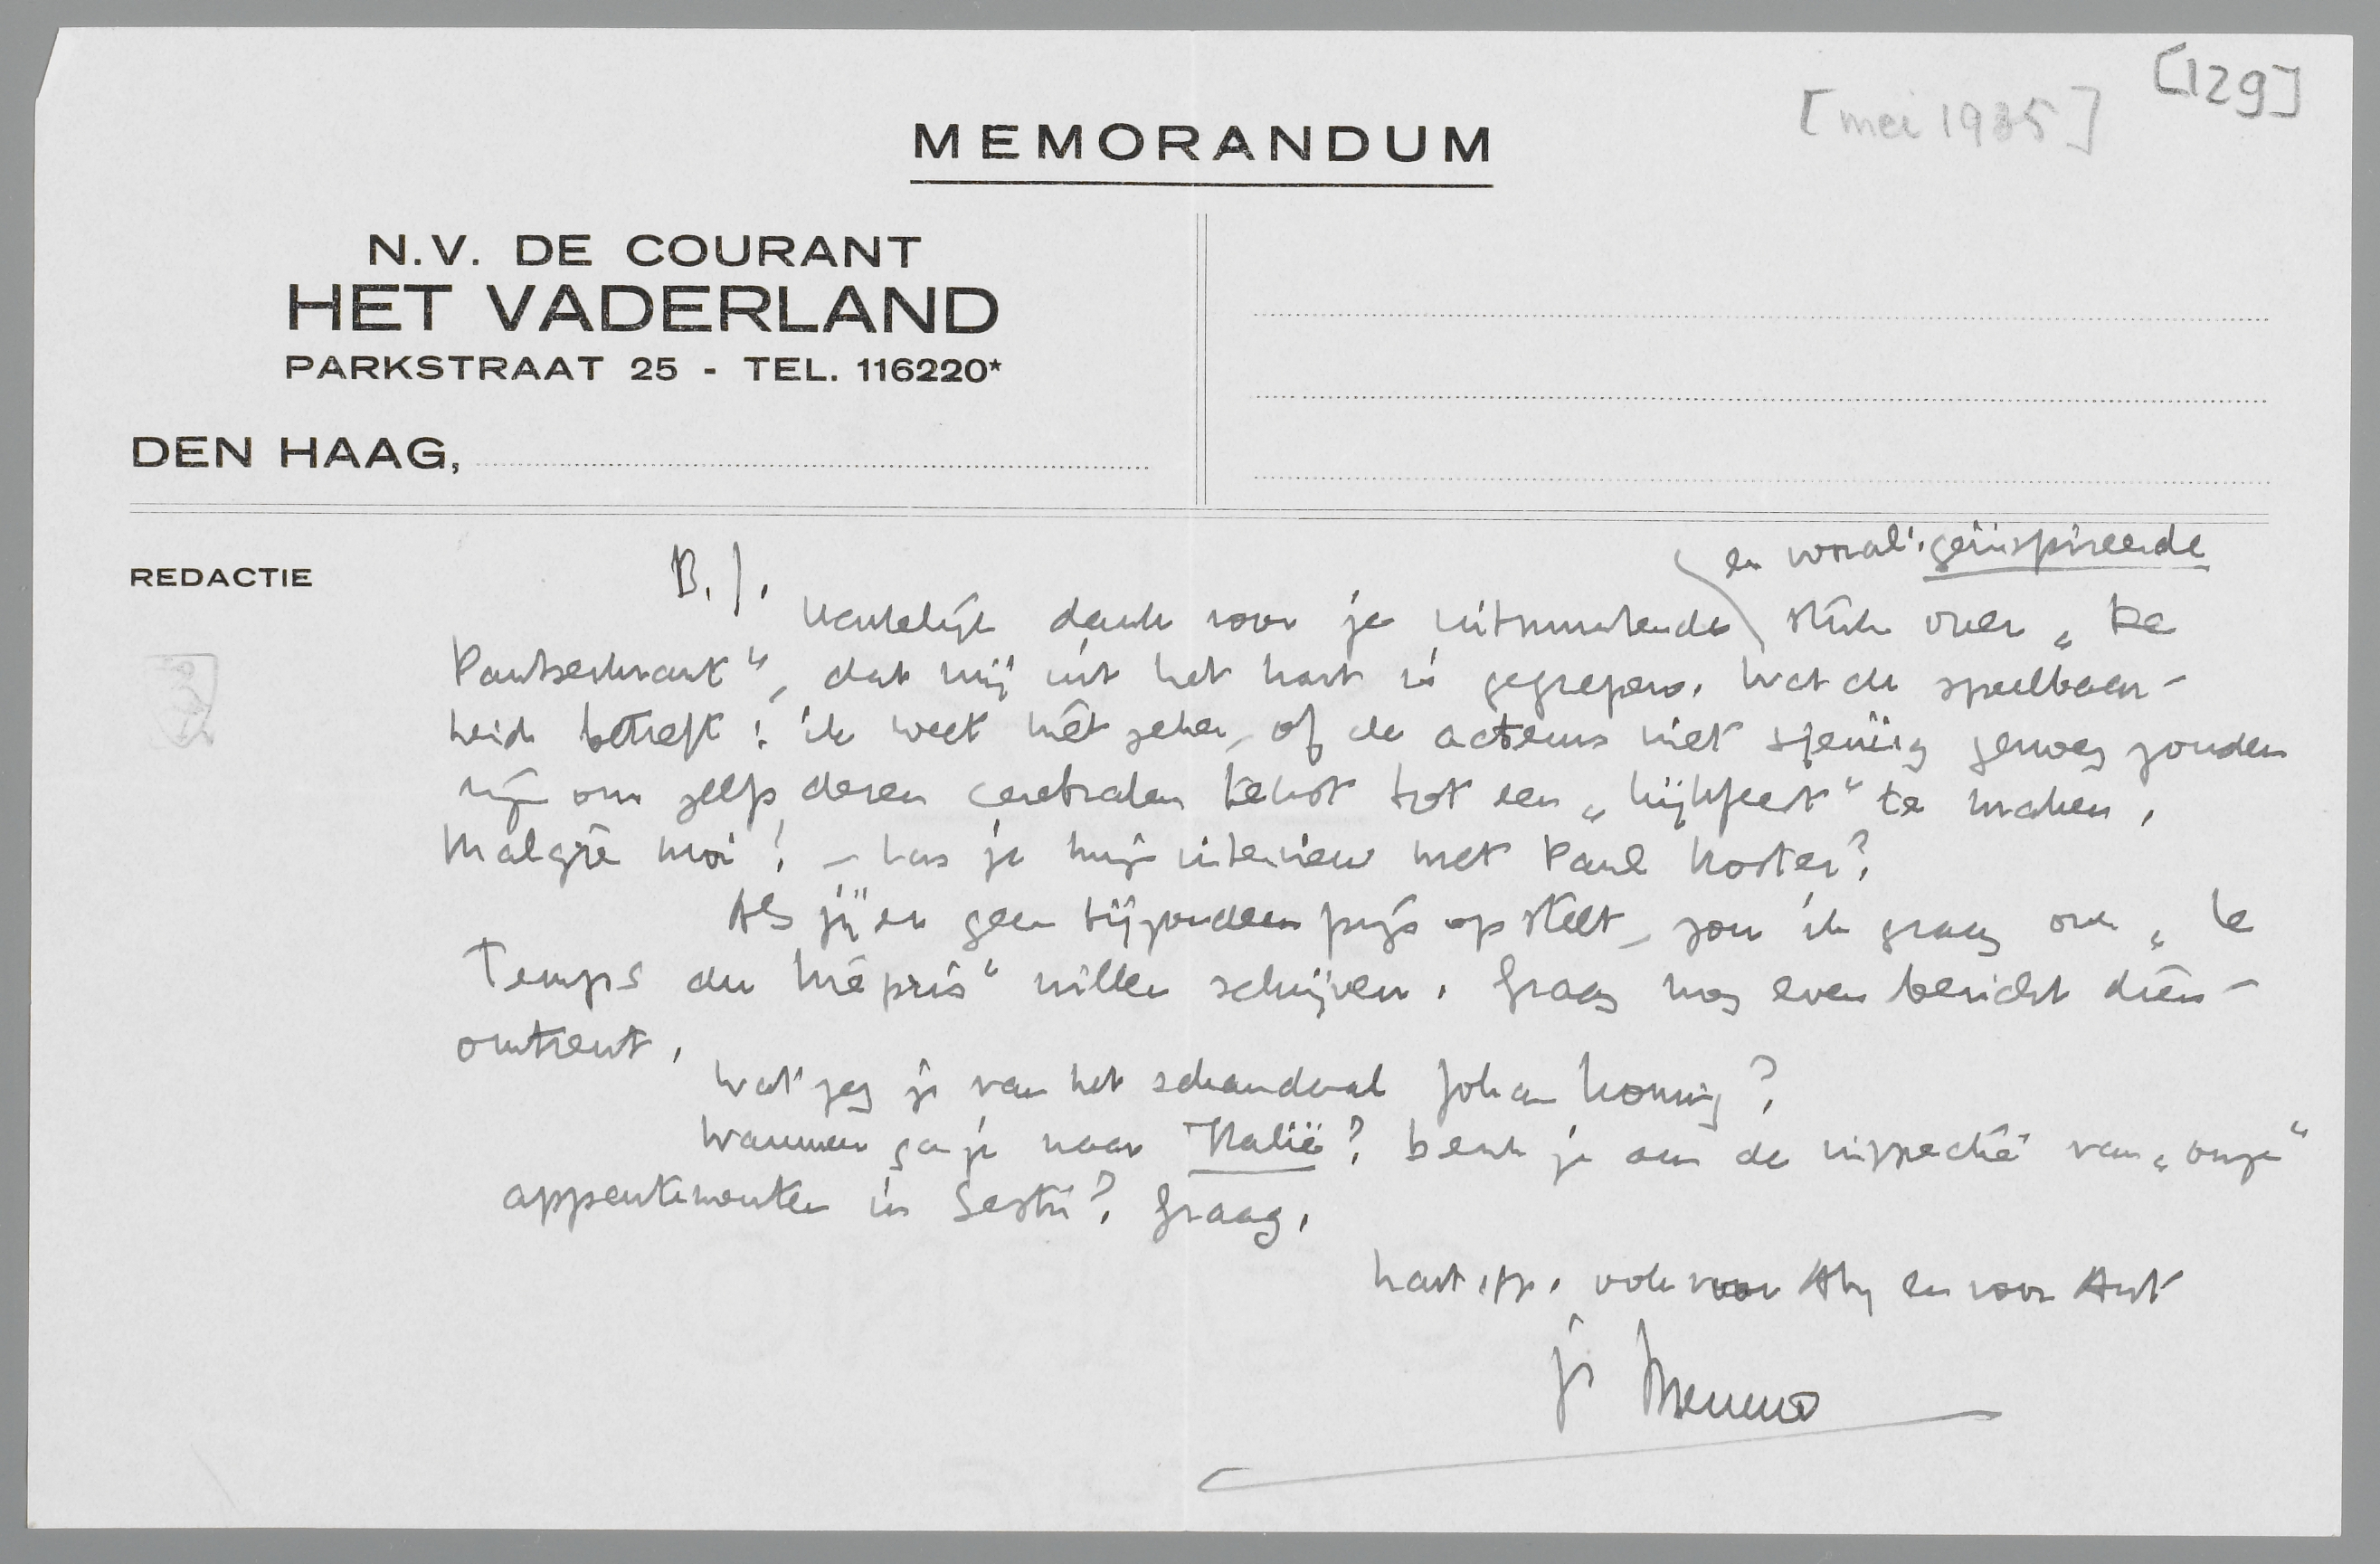 [129]
[mei 1935]
MEMORANDUM
N.V. DE COURANT
HET VADERLAND
PARKSTRAAT 25 - TEL. 116220*
DEN HAAG,
REDACTIE
en vooral: geïnspireerde
B. J.
Hartelijk dank voor je uitmuntende stuk over „De
Pantserkrant“, dat mij uit het hart is gegrepen. Wat de speelbaar-
heid betreft: ik weet niet zeker, of de acteurs niet sjeuïg genoeg zouden
zijn om zelfs dezen cerebralen tekst tot een „kijkfeest“ te maken.
Malgré moi! – Las je mijn interview met Paul Koster?
Als jij er geen bijzonderen prijs op stelt, zou ik graag over „Le
Temps du Mépris“ willen schrijven. Graag nog even bericht dien-
omtrent.
Wat zeg je van het schandaal Johan Koning?
Wanneer ga je naar Italië? Denk je aan de inspectie van „onze“
appartementen in Sestri? Graag.
hart. gr. ook voor Aty en voor Ant
je Menno